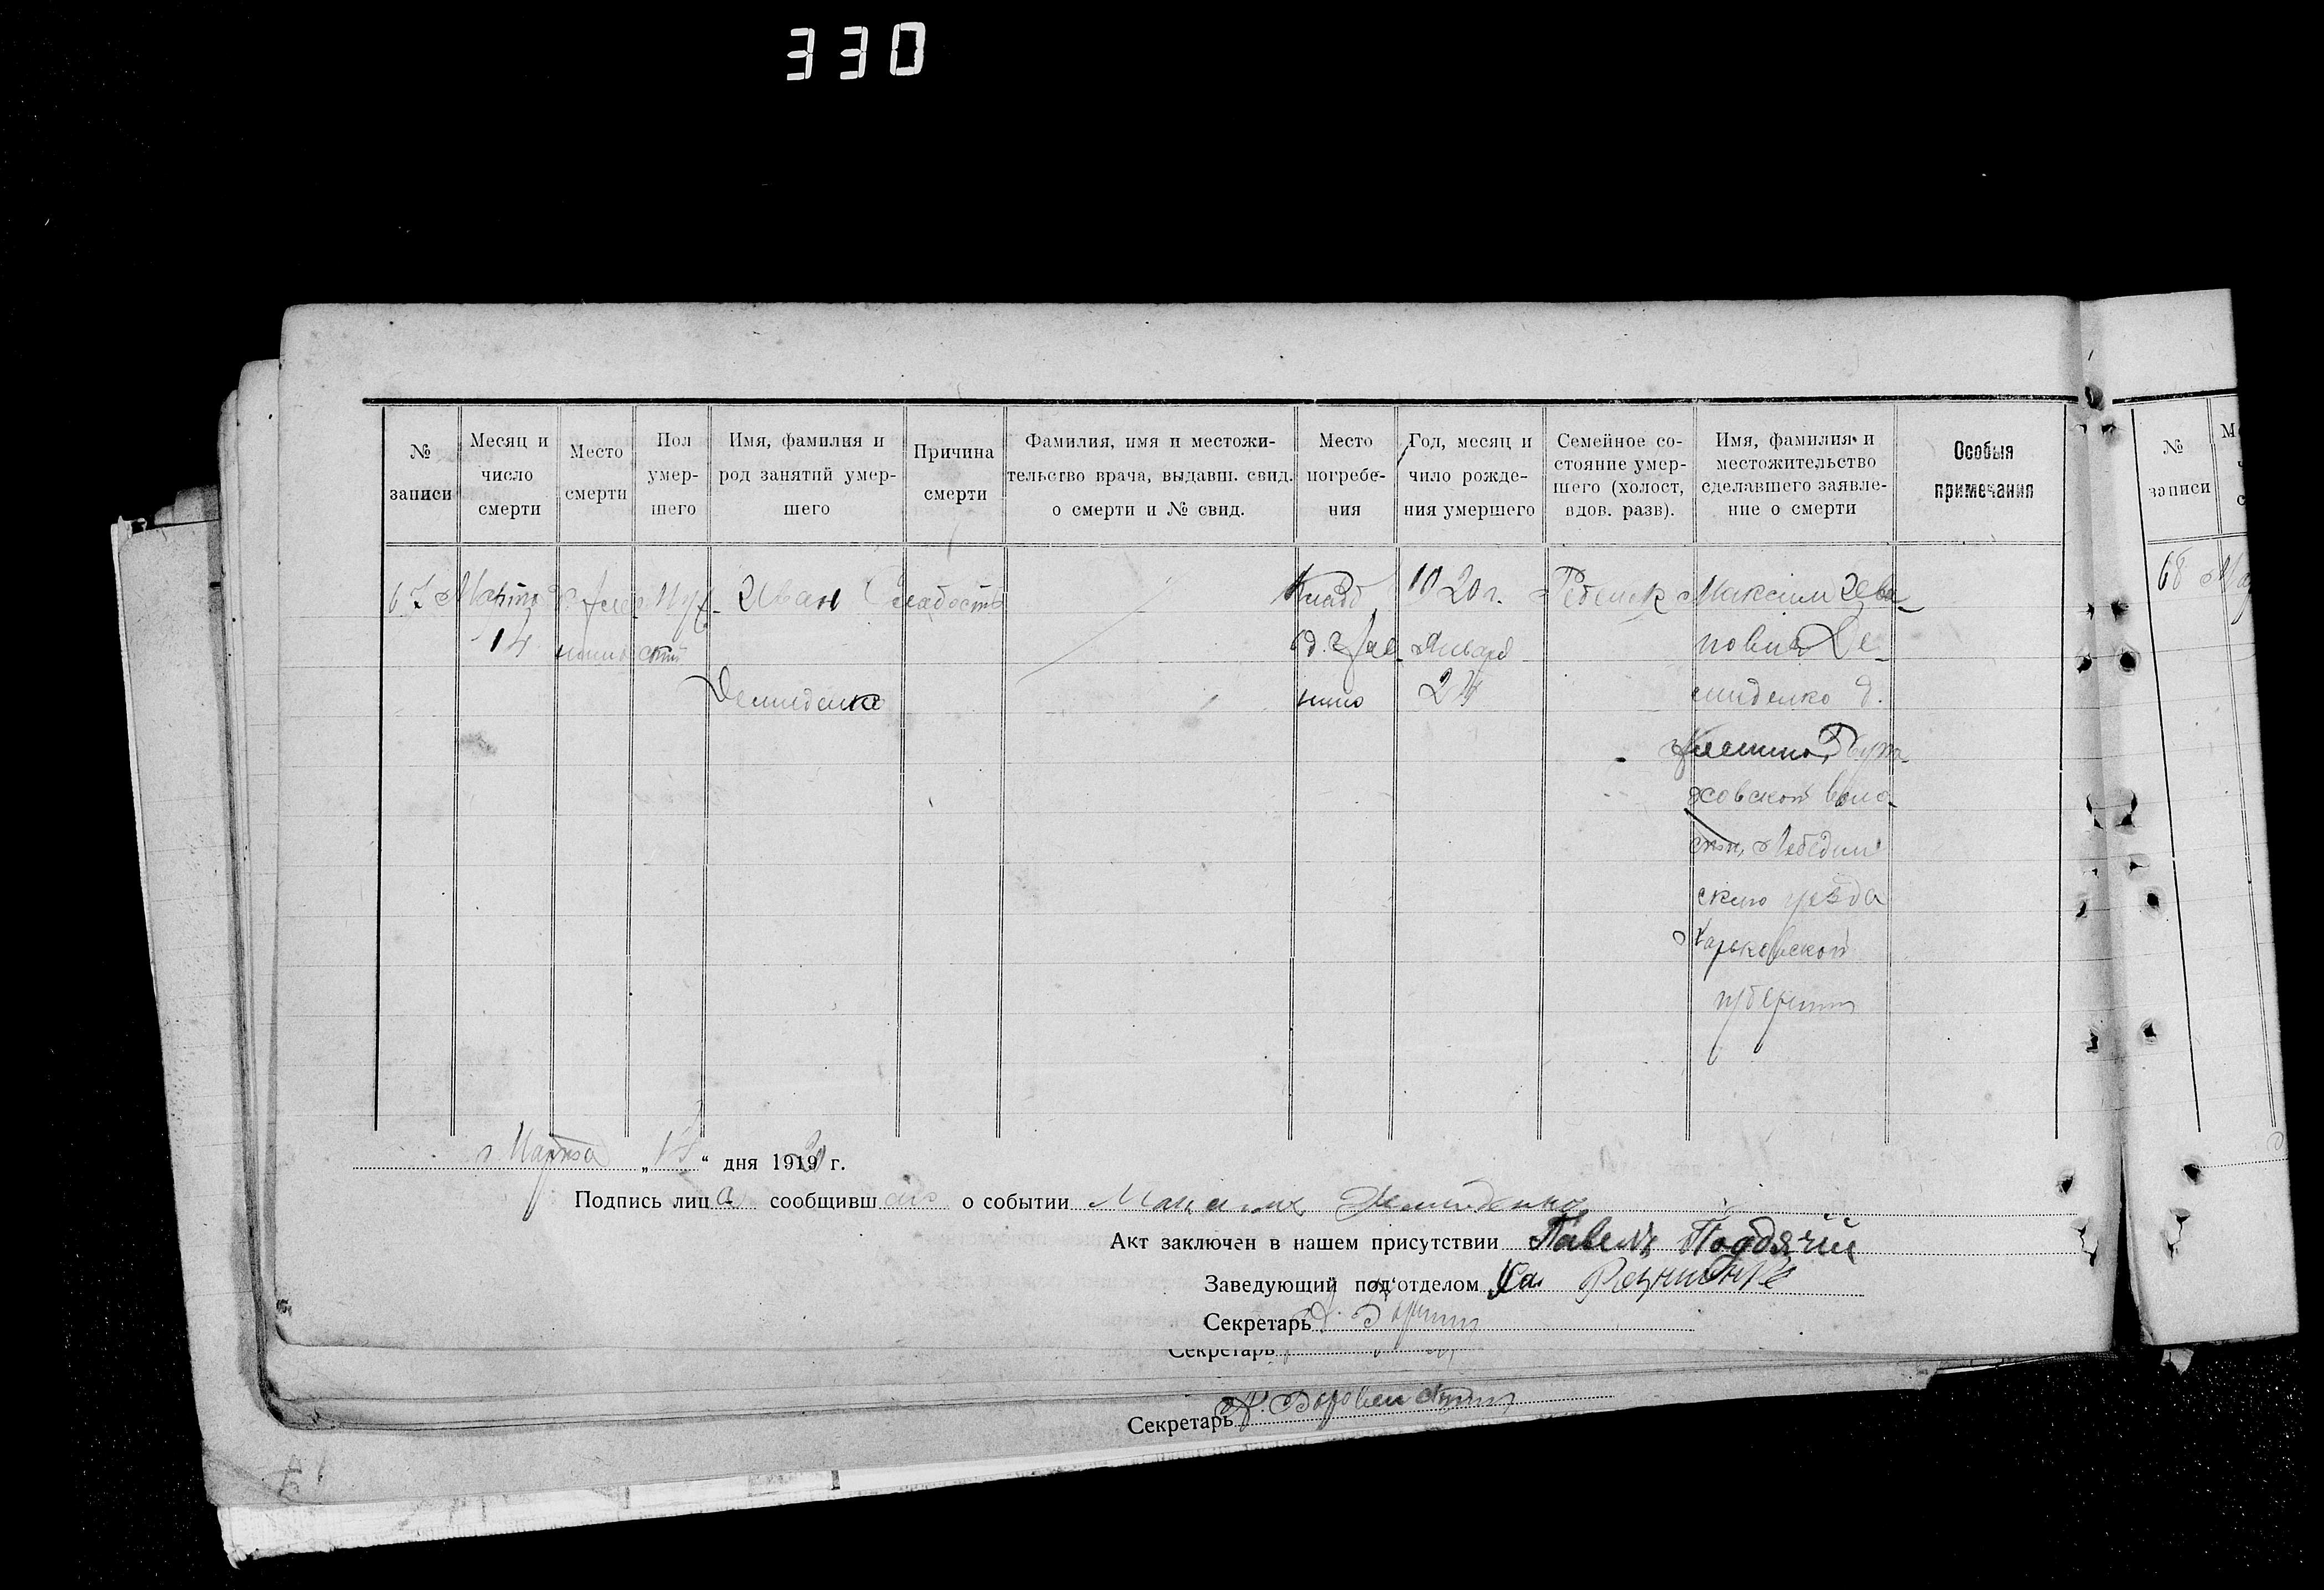 330
№ записи
Месяц и число смерти
Место смерти
Пол умер-шего
Имя, фамилия и род занятий умер-шего
Причина смерти
Фамилия, имя и местожи-тельство врача, выдавш. свид. о смерти и № свид.
Место погребе-ния
Год, месяц и чило рожде-ния умершего
Семейное со-стояние умер-шего (холост, вдов. разв).
Имя, фамилия и местожительство сделавшего заявле-ние о смерти
Особыя примечания
№ записи
67
Марта
14
Муж-
ской
Иван
Демиденко
Слабость
Кладб.
1920 г.
Январь
24
Ребенок
Максим Ива-
нович Де-
миденко д.
ховской воло-
сти, Лебедин
ского уезда
Харьковской
губернии
68
Марта „ “ дня 1919 г.
Подпись лица сообщивш о событии Максим Демиденко
Акт заключен в нашем присутствии Павелъ
Заведующий под'отделом
Секретарь
Секретарь
Секретарь